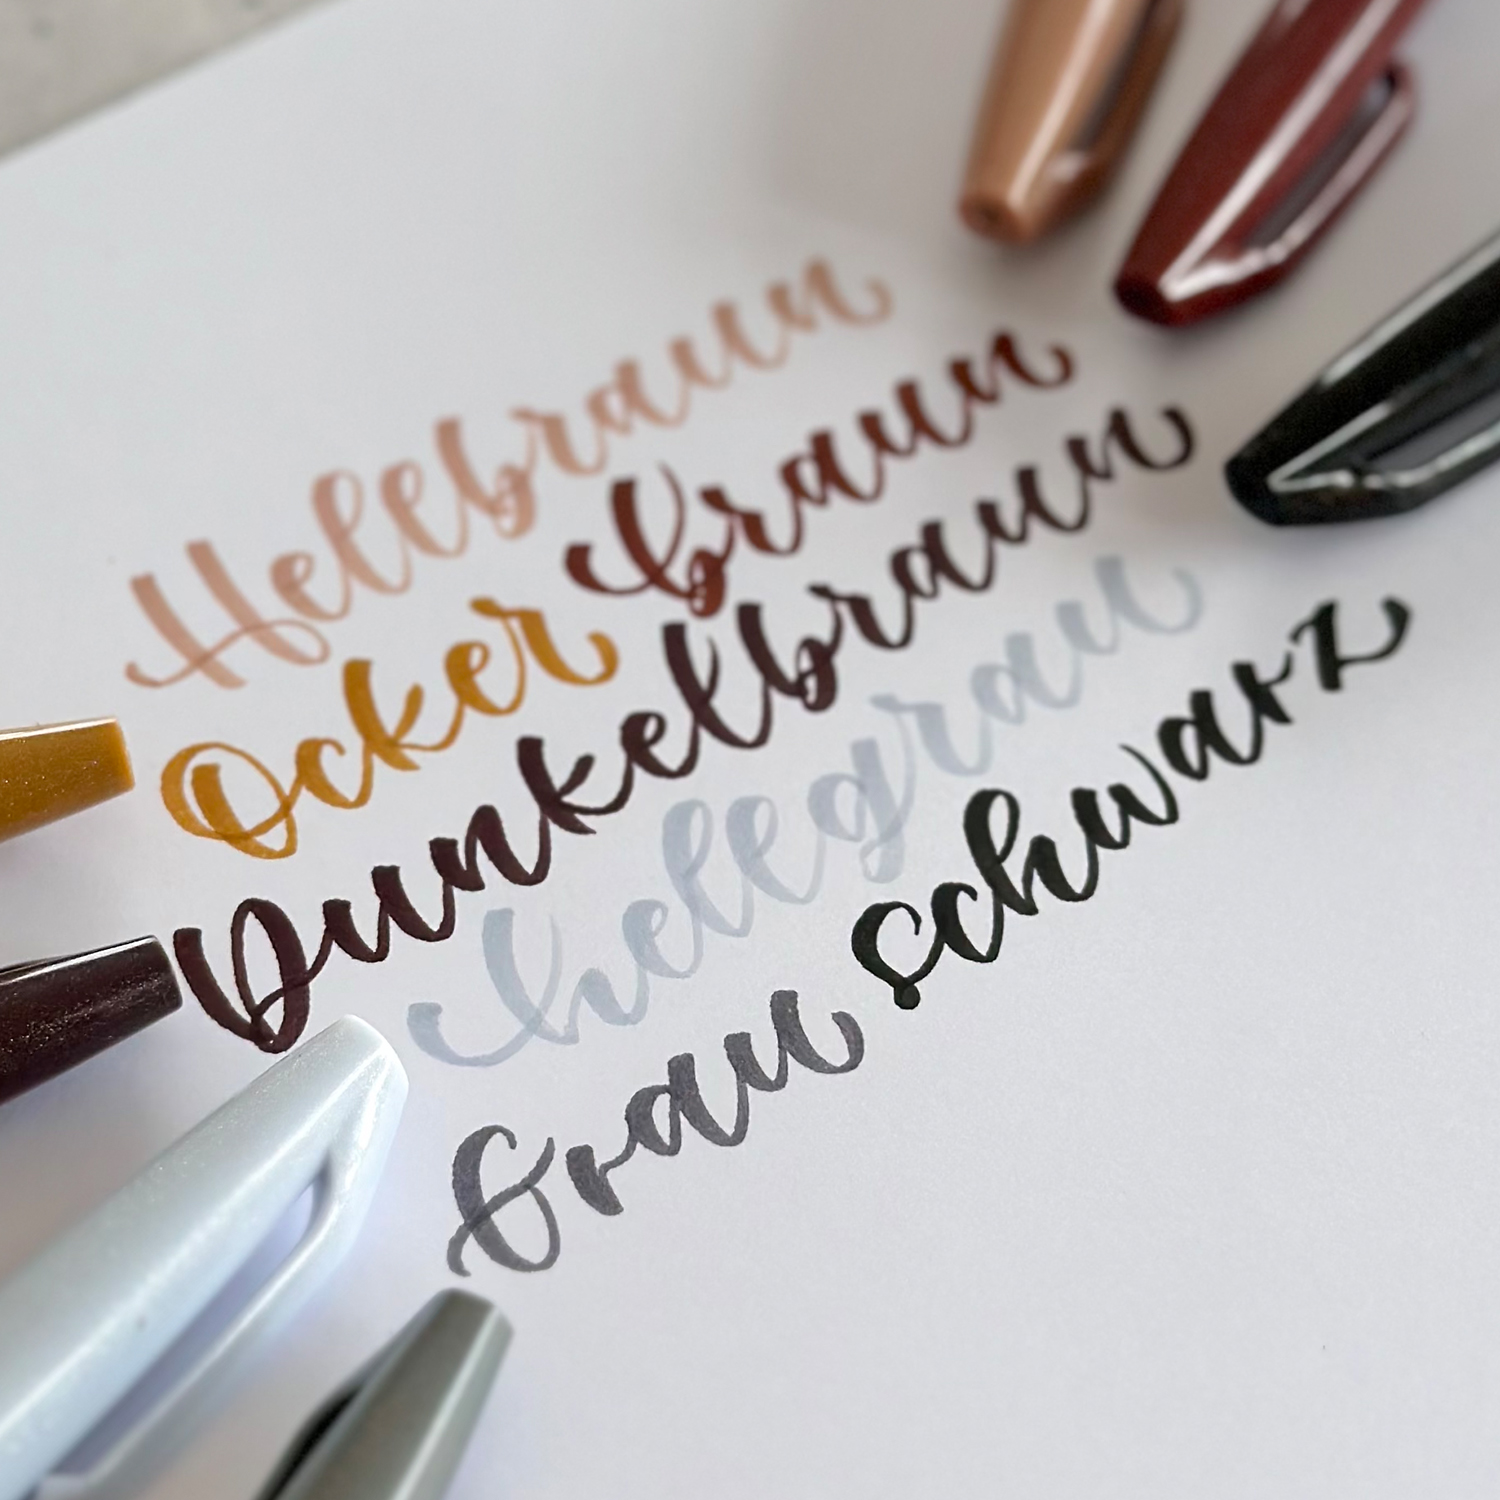 Hellbraun
Ocker braun
Dunkelbraun
hellgrau
Grau schwarz